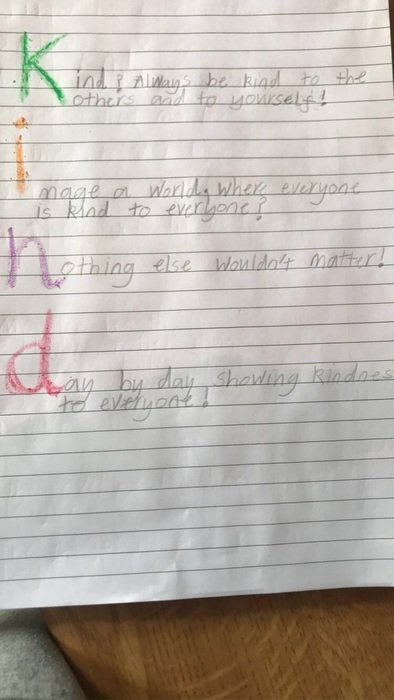 Kind? Always be kind to the
others and to yourself!
image a world, where everyone
is kind to everyone?
nothing else wouldn't matter!
day by day, showing kindnes
to everyone!